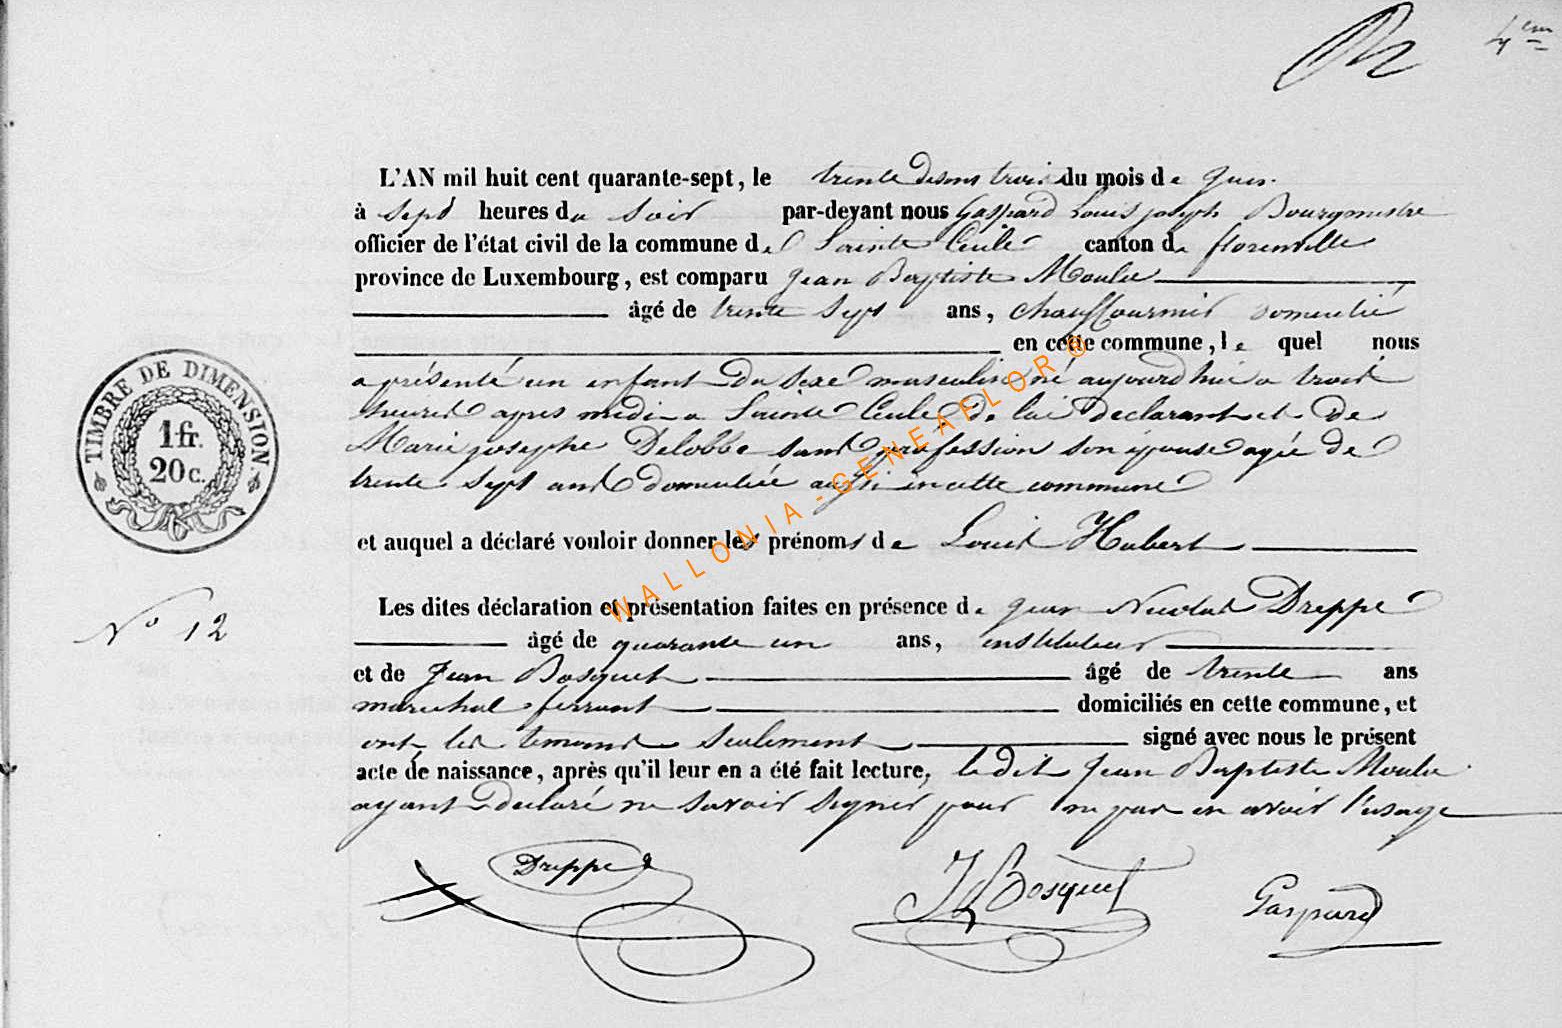 4em
L'AN mil huit cent quarante-sept, le trente du mois de Juin
à sept heures du soir par-devant nous Gaspard Louis Joseph Bourgmestre
officier de l'état civil de la commune de Sainte Cecile canton de florenville
province de Luxembourg, est comparu Jean Baptiste Moulu
âgé de trente sept ans, chauffournier domicilié
en cette commune, le quel nous
a présenté un enfant du sexe masculin né aujourd'hui a trois
heures apres midi a Sainte Cecile de lui declarant et de
Marie josephe Delobbe sans profession son épouse agée de
trente sept ans domiciliée aussi en cette commune
et auquel a déclaré vouloir donner les prénoms de Louis Hubert
Les dites déclaration et présentation faites en présence de Jean Nicolas Dreppe
âgé de quarante un ans, instituteur
et de Jean Bosquet âgé de trente ans
marechal ferrant domiciliés en cette commune, et
ont les temoins seulement signé avec nous le présent
acte de naissance, après qu'il leur en a été fait lecture, le dit Jean Baptiste Moulu
ayant declaré ne savoir signer pour ne pas en avoir l'usage
Dreppe J Bosquet Gaspard
TIMBRE DE DIMENSION
1 fr.
20 c.
No 12
WALLONIA-GENEAFLOR®